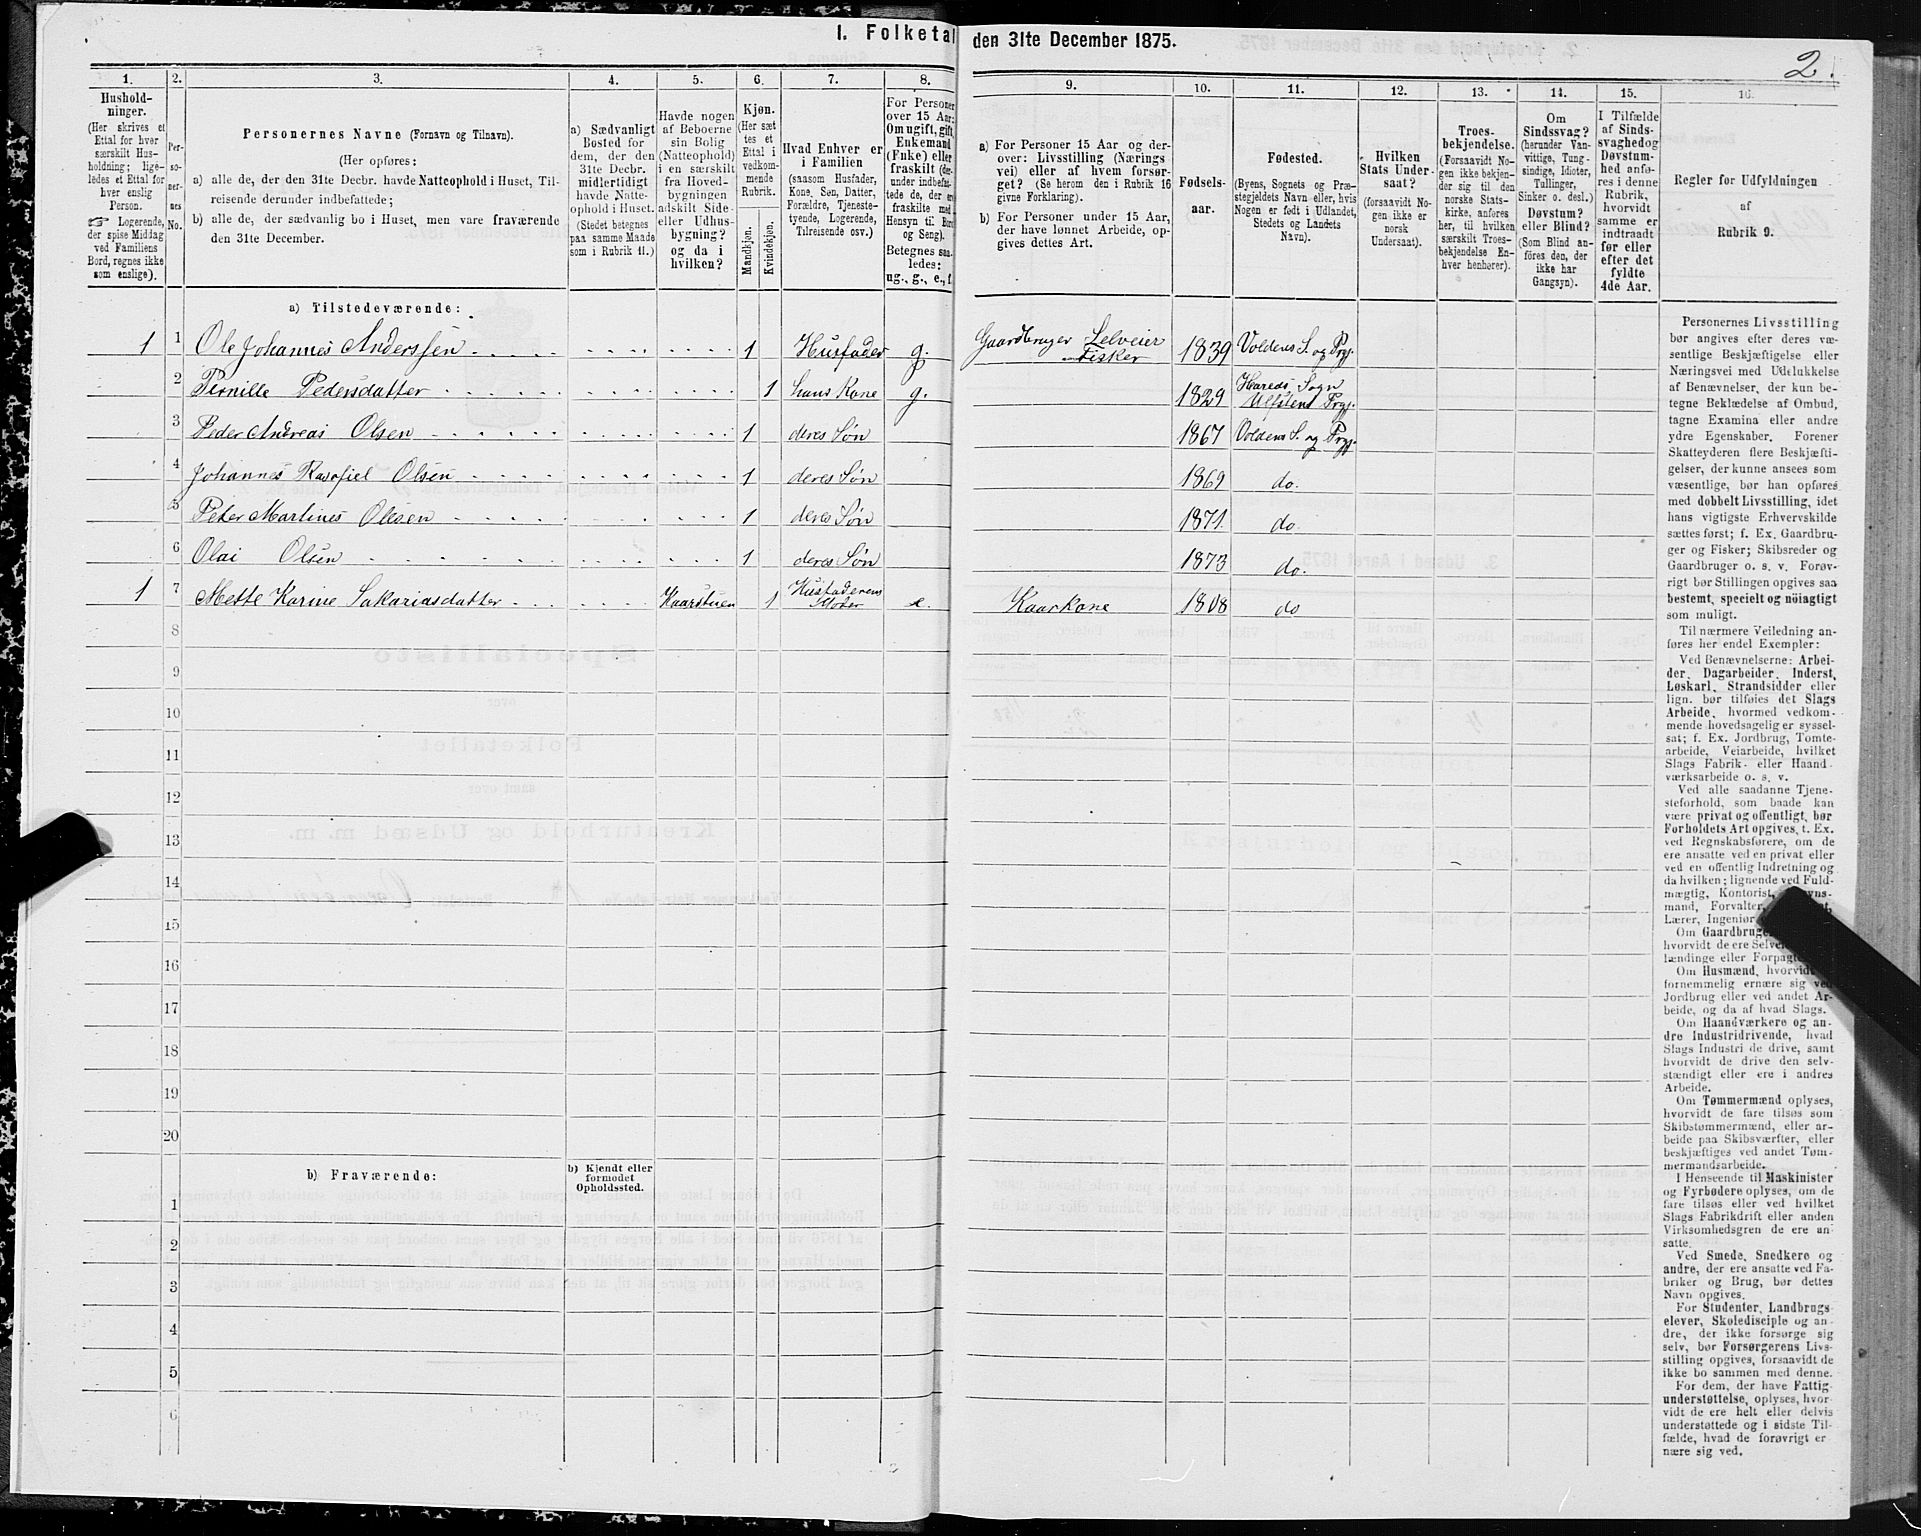 I. Folketal den 31te December 1875.
2.
1.
2.
3.
4.
5.
6.
7.
8.
9.
10.
11.
12.
13.
14.
15.
16.
Hushold-
ninger.
(Her skrives et
Ettal for hver
særskilt Hus-
holdning; lige-
ledes et Ettal for
hver enslig
Person.
☞ Logerende,
der spise Middag
ved Familiens
Bord, regnes ikke
som enslige).
Per-
so-
ner-
nes
No.
Personernes Navne (Fornavn og Tilnavn).
(Her opføres:
a) alle de, der den 31te Decbr. havde Natteophold i Huset, Til-
reisende derunder indbefattede;
b) alle de, der sædvanlig bo i Huset, men vare fraværende
den 31te December.
a) Sædvanligt
Bosted for
dem, der den
31te Decbr.
midlertidigt
havde Natte-
ophold i Huset.
(Stedet betegnes
paa samme Maade
som i Rubrik 11.)
Havde nogen
af Beboerne
sin Bolig
(Natteophold)
i en særskilt
fra Hoved-
bygningen
adskilt Side-
eller Udhus-
bygning?
og da i
hvilken?
Kjøn.
(Her sæt
tes et
Ettal i
vedkom-
mende
Rubrik.
Mandkjøn.
Kvindekjøn.
Hvad Enhver er
i Familien
(saasom Husfader,
Kone, Søn, Datter,
Forældre, Tjeneste-
tyende, Logerende,
Tilreisende osv.)
For Personer
over 15 Aar:
Om ugift, gift,
Enkemand
(Enke) eller
fraskilt (der-
under indbefat-
tede de, der er
fraskilte med
Hensyn til Bord
og Seng).
Betegnes saa-
ledes:
ug., g., e., f.
a) For Personer 15 Aar og der-
over: Livsstilling (Nærings
vei) eller af hvem forsør-
get? (Se herom den i Rubrik 16
givne Forklaring).
b) For Personer under 15 Aar,
der have lønnet Arbeide, op-
gives dettes Art.
Fødsels-
aar.
Fødested.
(Byens, Sognets og Præ-
stegjeldets Navn eller, hvis
Nogen er født i Udlandet,
Stedets og Landets
Navn).
Hvilken
Stats Under-
saat?
(forsaavidt No-
gen ikke er
norsk
Undersaat).
Troes-
bekjendelse.
(Forsaavidt No-
gen ikke bekjen-
der sig til den
norske Stats-
kirke, anføres
her, til hvilken
særskilt Troes-
bekjendelse En-
hver henhører).
Om
Sindssvag?
(herunder Van-
vittige, Tung-
sindige, Idioter,
Tullinger,
Sinker o. desl.)
Døvstum?
eller Blind?
(Som Blind an-
föres den, der
ikke har
Gangsyn).
I Tilfælde
af Sinds-
svaghed og
Døvstum-
hed anfø-
res i denne
Rubrik,
hvorvidt
samme er
indtraadt
før eller
efter det
fyldte
4de Aar.
Regler før Udfyldningen
af
Rubrik 9.
a) Tilstedeværende:
1 1 Ole Johannes Anderssen 1 Husfader g. Gaardbruger Selveier Fisker 1839 Voldens S. og Prgj.
2 Pernille Pedersdatter 1 hans Kone g. 1829 Hareds Sogn Ulfstens Prgj.
3 Peder Andreas Olsen 1 deres Søn 1867 Voldens S. og Prgj.
4 Johannes Olsen 1 deres Søn 1869 do.
5 Peter Martines Olesen 1 deres Søn 1871. do.
6 Olai Olsen 1 deres Søn 1873 do.
1 7 Mette Karine Sakariasdatter Kaarstuen 1 Husfaderens Moder e. Kaarkone 1808 do
8
9
10
11
12
13
14
15
16
17
18
19
20
b) Fraværende:
b) Kjendt eller
formodet
Opholdssted.
1
2
3
4
5
6
Personernes Livsstilling
bør angives efter deres væ-
sentlige Beskjæftigelse eller
Næringsvei med Udelukkelse
af Benævnelser, der kun be-
tegne Beklædelse af Ombud,
tagne Examina eller andre
ydre Egenskaber. Forener
Skatteyderen flere Beskjæfti-
gelser, der kunne ansees som
væsentlige, bør han opføres
med dobbelt Livsstilling, idet
hans vigtigste Erhvervskilde
sættes først; f. Ex. Gaardbru-
ger og Fisker; Skibsreder og
Gaardbruger o. s. v. Forøv-
rigt bør Stillingen opgives saa
bestemt, specielt og nöiagtigt
som muligt.
Til nærmere Veiledning an-
føres her endel Exempler:
Ved Benævnelserne: Arbei-
der, Dagarbeider, Inderst,
Løskarl, Strandsidder eller
lign. bør tilføies det Slags
Arbeide, hvormed vedkom-
mende hovedsagelig er syssel-
sat; f. Ex. Jordbrug, Tomte-
arbeide, Veiarbeide, hvilket
Slags Fabrik- eller Haand
værksarbeide o. s. v.
Ved alle saadanne Tjene-
steforhold, som baade kan
være privat og offentligt, bør
Forholdets Art opgives, t. Ex.
ved Regnskabsførere, om de
ere ansatte ved en privat eller
ved en offentlig Indretning og
da hvilken; lignende ved Fuld-
mægtig, Kontorist,
mand, Forvalter,
Lærer, Ingeniør
Om Gaardbruge
hvorvidt de ere Selvei
lændinge eller Forpagte
Om Husmænd, hvorvidt
fornemmelig ernære sig ved
Jordbrug eller ved andet Ar-
beide, og da af hvad Slags.
Om Haandværkere og an-
dre Industridrivende, hvad
Slags Industri de drive, samt
hvorvidt de drive den selv-
stændigt eller ere i andres
Arbeide.
Om Tømmermænd oplyses,
hvorvidt de fare tilsøs som
Skibstømmermænd, eller ar-
beide paa Skibsværfter, eller
beskjæftiges ved andet Tøm-
mermandsarbeide.
I Henseende til Maskinister
og Fyrbødere oplyses, om de
fare tilsøs eller ved hvilket
Slags Fabrikdrift eller anden
Virksomhedsgren de ere an-
satte.
Ved Smede, Snedkere og
andre, der ere ansatte ved Fa-
briker og Brug, bør dettes
Navn opgives.
For Studenter, Landbrugs-
elever, Skoledisciple og an-
dre, der ikke forsørge sig
selv, bør Forsørgerens Livs-
stilling opgives, forsaavidt de
ikke bo sammen med denne.
For dem, der have Fattig-
understøttelse, oplyses, hvor-
vidt de ere helt eller delvis
understøttede og i sidste Til-
fælde, hvad de forøvrigt er-
nære sig ved.